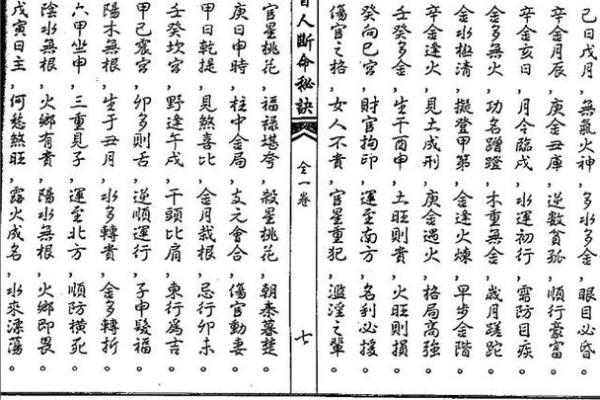 己日戊月,無氣火神,多水多金,眼目必昏。
辛金月辰,庚金丑庫,逆數貧孤,順行豪富。
辛金亥日,月令臨戌,水運初行,需防目疾。
金多無火,功名蹭蹬,木重無金,歲月蹉跎。
金水極清,擬登甲第,金逢火煉,早步金階。
辛金逢火,見土成刑,庚金遇火,格局高強。
壬癸多金,生于酉申,土旺則貴,火旺則損。
癸向巳宮,財官拘印,運至南方,名利必援。
傷官之格,女人不貴,官星重犯,濫淫之輩。
盲人斷命秘訣
全一卷
七
官星桃花,福祿堪夸,殺星桃花,朝秦暮楚。
庚日申時,柱中金局,支元會合,傷官動妻。
甲日乾提,見煞喜比,金月栽根,忌行卯未。
壬癸坎宮,野逢午戌,干頭比肩,東行為吉。
甲己震宮,卯多則舌,逆順運行,子申發福。
陽木無根,生于丑月,水多轉貴,金多轉折。
六甲坐申,三重見子,運至北方,順防橫死。
陰水無根,火鄉有貴,陽水無根,火鄉即畏。
戊寅日主,何愁煞旺,露火成名,水來漂蕩。